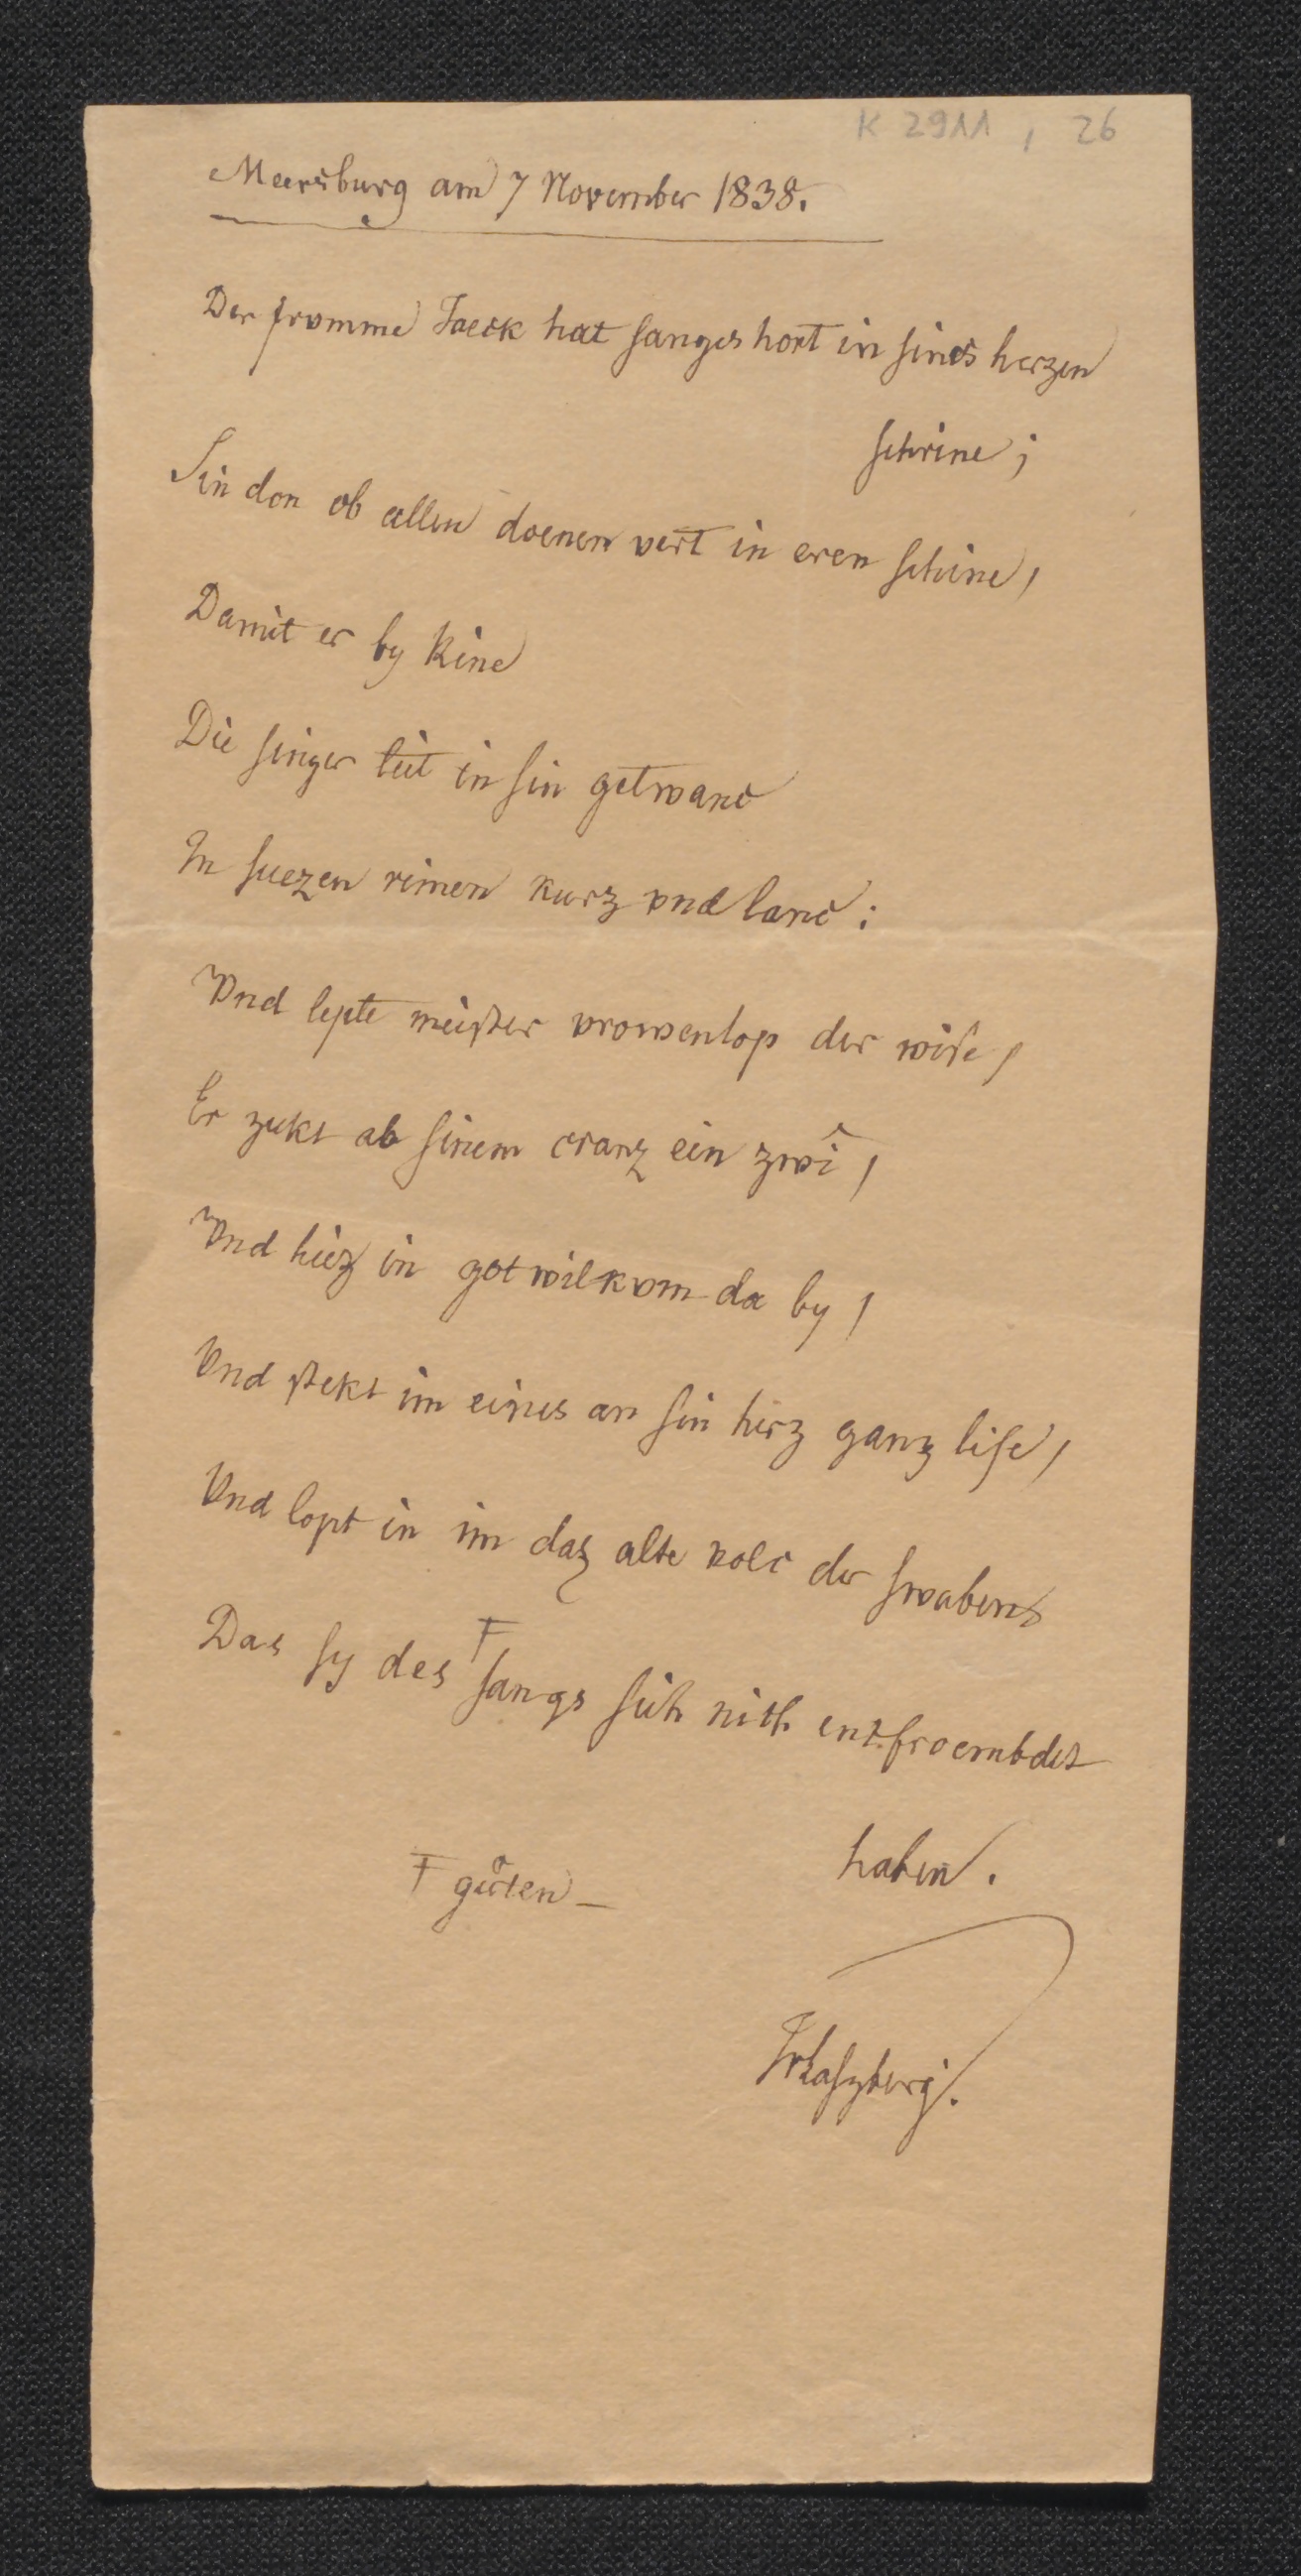 K 2911, 26
Meersburg am 7 November 1838.
Der fromme Jaeck hat sanges hort in sines herzen
schrine;
Sin don ob allen doenen vert in eren schine,
Damit er by Rine
Die singer leit in sin getwanc
In suezen rimen kurz vnd lanc:
Vnd lepte meister vrowenlop der wise,
Er zukt ab sinem cranz ein zwî,
Vnd hiez in got wilkom da by,
Vnd stekt im eines an sin herz ganz lise,
Vnd lopt in im daz alte volc der swabens
Das sy des Ŧ sangs sich nith entfroembdet
haben.
Ŧ gůten –
JvLaszberg.